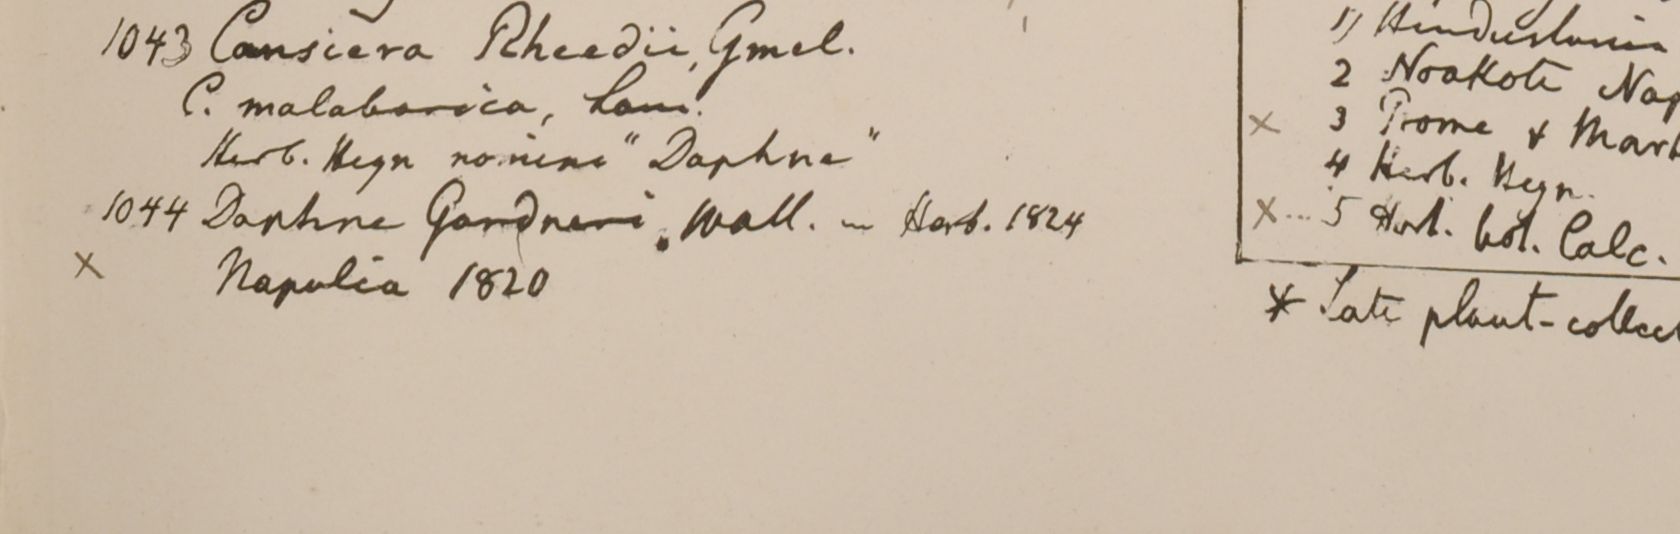 1043 Cansiera Rheedii, Gmel.
C. malabarica, Lam.
Herb. Heyn nomine "Daphne"
1044 Daphne Gardneri, Wall. in Herb. 1824
x Napulia 1820
1) Hindustania
2 Noakote Nap
x 3 Prome & Mart
4 Herb. Heyn.
x... 5 Hort. bot. Calc.
* Late plant-collect